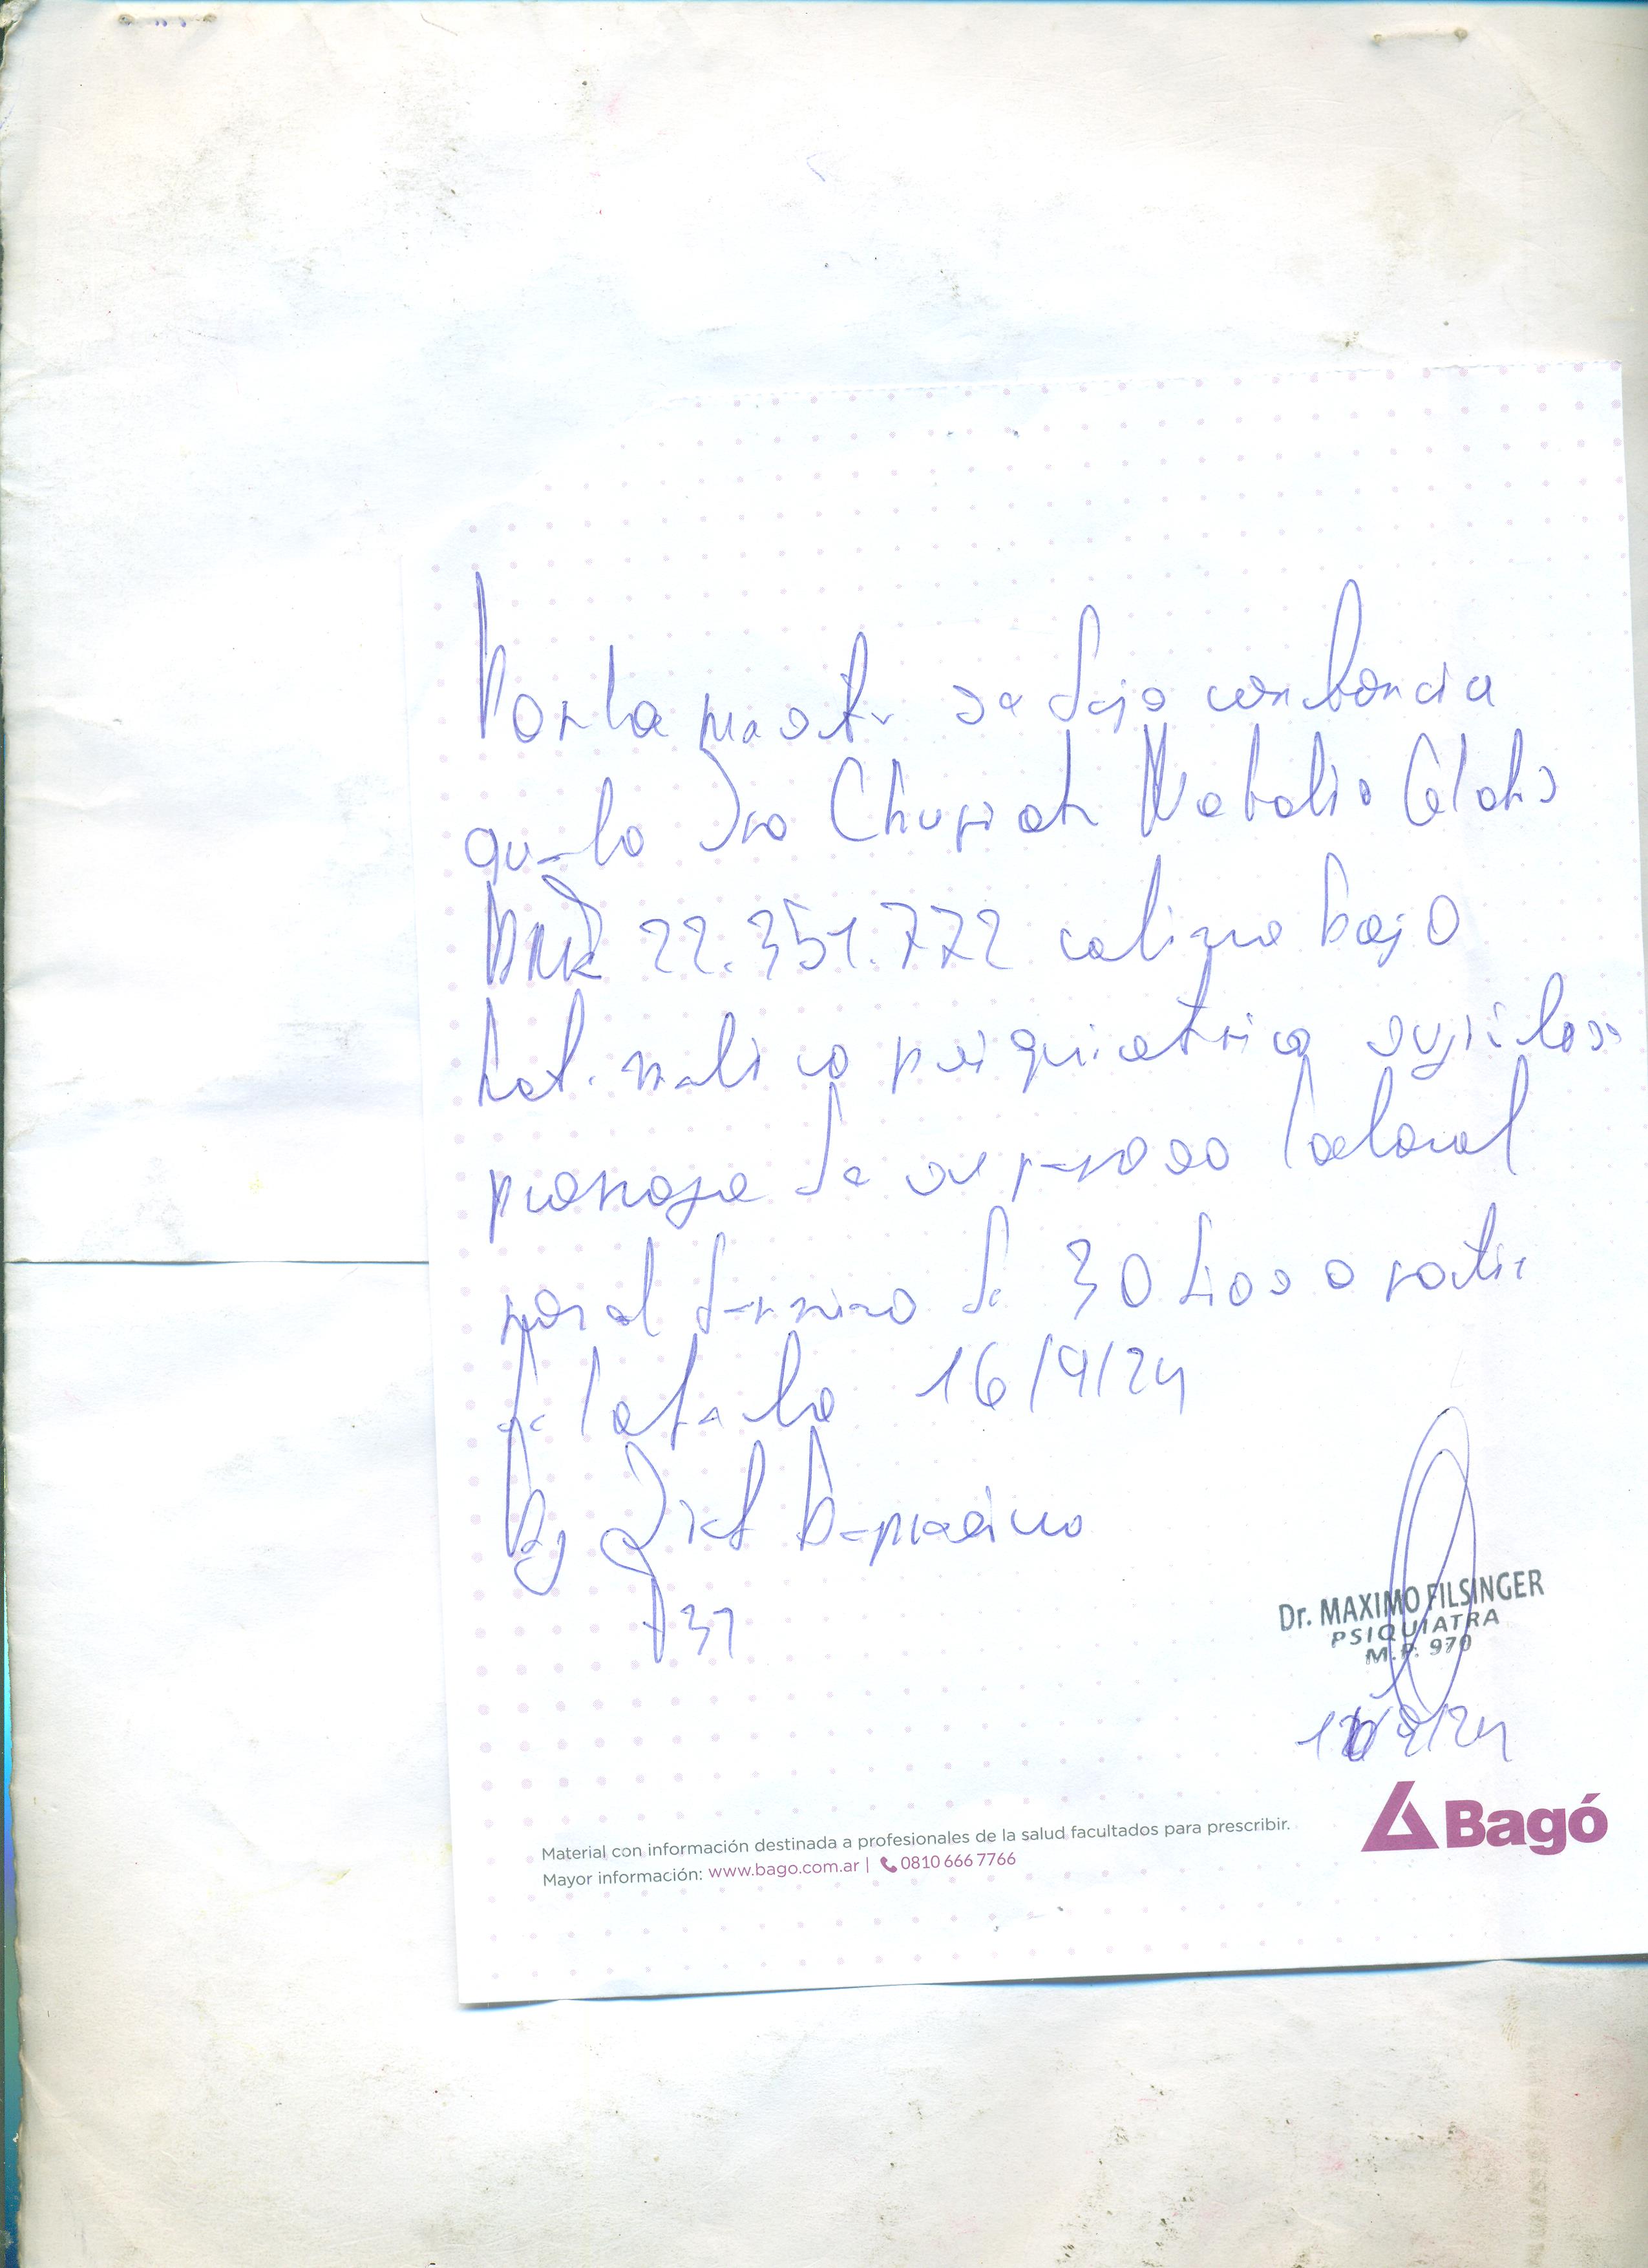 Por la presente se deja constancia
que la Sra Natalia
DNI 22.351.772 continua bajo
trat. medico psiquiatrico
prorroga de reposo laboral
por el termino de 30 dias a partir
de la fecha 16/9/24
Dg Depresivo
Dr. MAXIMO FILSINGER
PSIQUIATRA
M.P. 970
/9/24
Bagó
Material con información destinada a profesionales de la salud facultados para prescribir.
Mayor información: www.bago.com.ar | 0810 666 7766